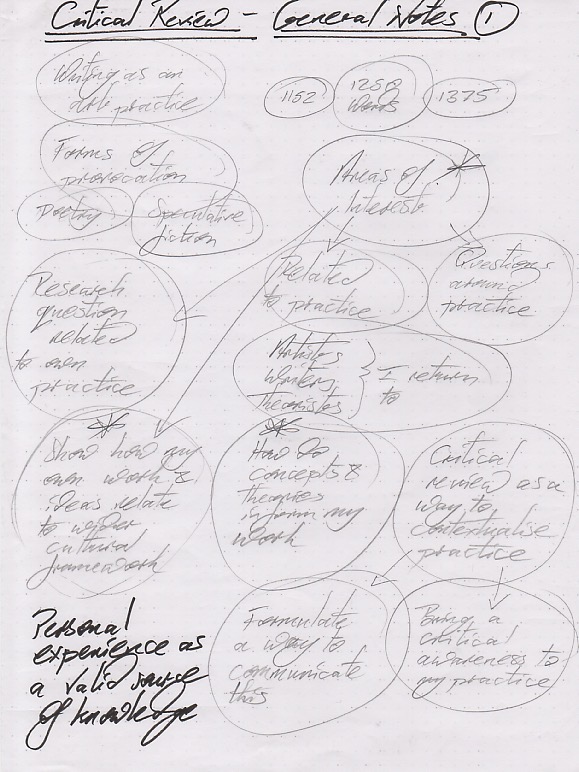 Critical Review – General Notes 1
Writing as an
art practice
1152
1250
words
1375
Forms of
provocation
Poetry
Speculative
fiction
Areas of
interest
Related
to practice
Questions
around
practice
Research
question
related
to own
practice
Artists
Writers
Theorists
I return
to
Show how my
own work &
ideas relate
to wider
cultural
framework
How do
concepts &
theories
inform my
work
Critical
review as a
way to
contextualise
practice
Personal
experience as
a valid source
of knowledge
Formulate
a way to
communicate
this
Bring a
critical
awareness to
my practice